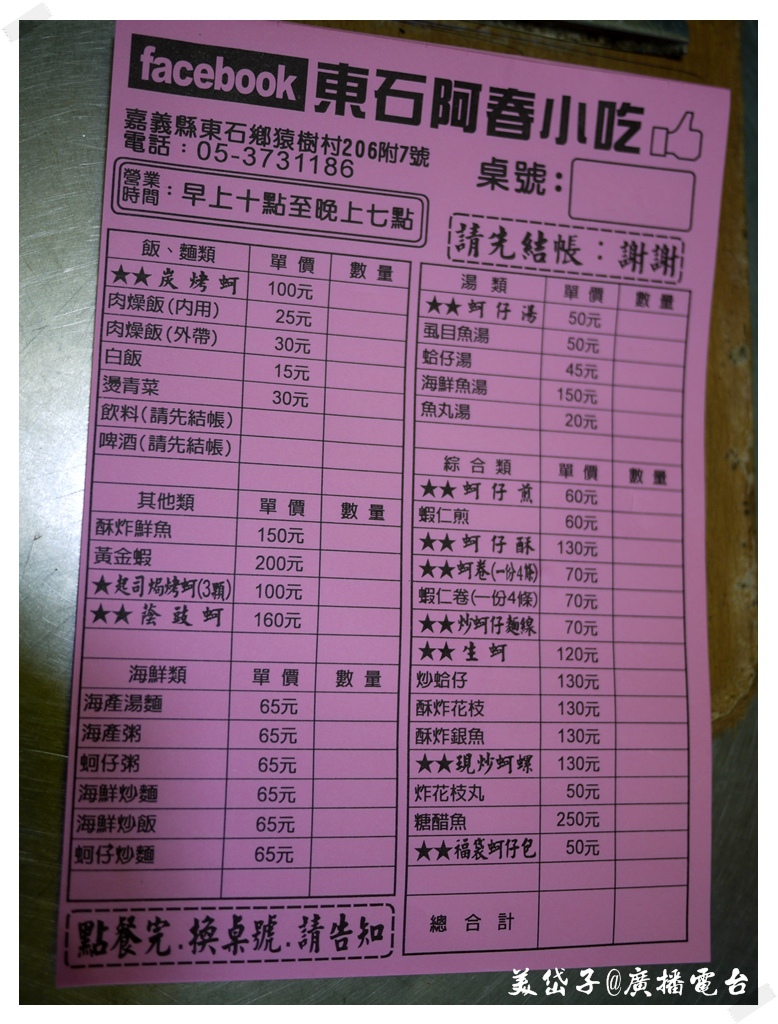 facebook 東石阿春小吃
嘉義縣東石鄉猿樹村206附7號
電話：05-3731186
桌號：
營業時間：早上十點至晚上七點
請先結帳：謝謝
飯、麵類 單價 數量
★★炭烤蚵 100元
肉燥飯(內用) 25元
肉燥飯(外帶) 30元
白飯 15元
燙青菜 30元
飲料(請先結帳)
啤酒(請先結帳)
其他類 單價 數量
酥炸鮮魚 150元
黃金蝦 200元
★起司焗烤蚵(3顆) 100元
★★蔭豉蚵 160元
海鮮類 單價 數量
海產湯麵 65元
海產粥 65元
蚵仔粥 65元
海鮮炒麵 65元
海鮮炒飯 65元
蚵仔炒麵 65元
點餐完.換桌號.請告知
湯類 單價 數量
★★蚵仔湯 50元
虱目魚湯 50元
蛤仔湯 45元
海鮮魚湯 150元
魚丸湯 20元
綜合類 單價 數量
★★蚵仔煎 60元
蝦仁煎 60元
★★蚵仔酥 130元
★★蚵卷(一份4條) 70元
蝦仁卷(一份4條) 70元
★★炒蚵仔麵線 70元
★★生蚵 120元
炒蛤仔 130元
酥炸花枝 130元
酥炸銀魚 130元
★★現炒蚵螺 130元
炸花枝丸 50元
糖醋魚 250元
★★福袋蚵仔包 50元
總合計
美岱子@廣播電台